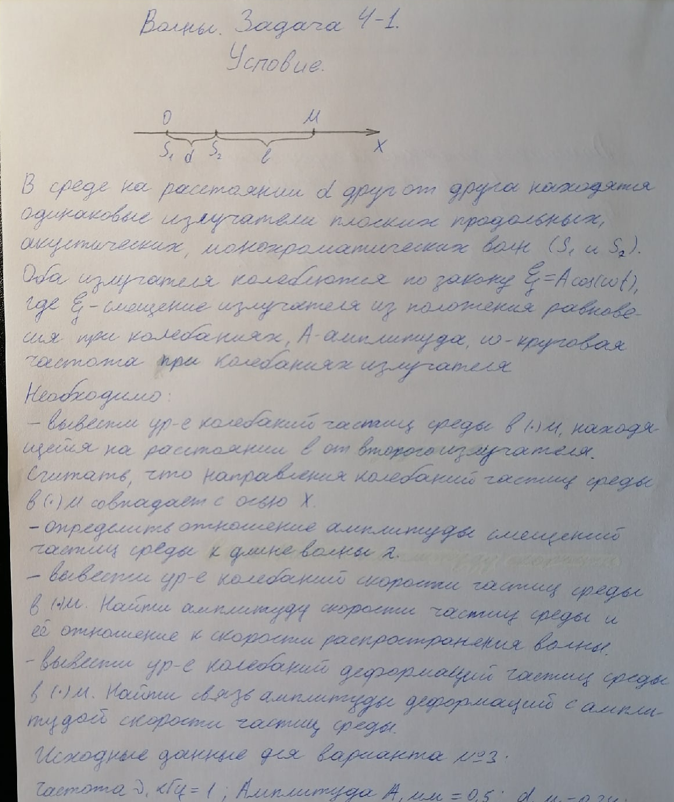 Волны. Задача 4-1.
Условие.
O M
S₁ d S₂ l X
В среде на расстоянии d друг от друга находятся
одинаковые излучатели плоских продольных,
акустических, монохроматических волн (S₁ и S₂).
Оба излучателя колеблются по закону ξ=Acos(ωt),
где ξ-смещение излучателя из положения равнове-
сия при колебаниях, А-амплитуда, ω-круговая
частота при колебаниях излучателя
Необходимо:
- вывести ур-е колебаний частиц среды в (·)М, находя-
щейся на расстоянии l от второго излучателя.
Считать, что направления колебаний частиц среды
в (·) М совпадает с осью Х.
- определить отношение амплитуды смещений
частиц среды к длине волны λ.
- вывести ур-е колебаний скорости частиц среды
в (·)М. Найти амплитуду скорости частиц среды и
её отношение к скорости распространения волны.
- вывести ур-е колебаний деформаций частиц среды
в (·) М. Найти связь амплитуды деформаций с ампли-
тудой скорости частиц среды.
Исходные данные для варианта №3.
частота ν, кГц = 1; Амплитуда А, мм = 0,5; d, м